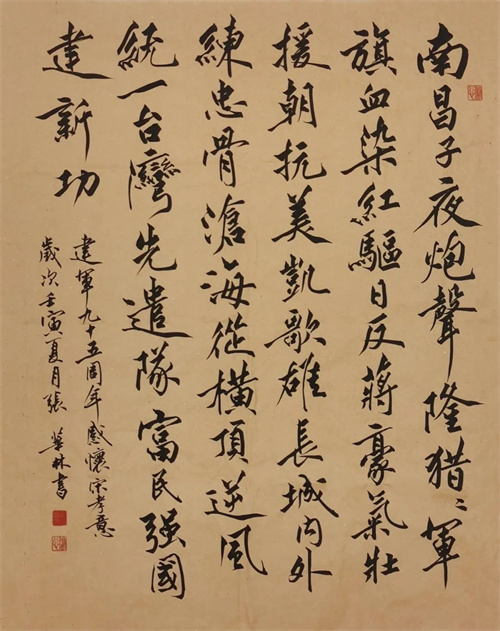 南昌子夜炮聲隆猎〻軍
旗血染紅驅日反蔣豪氣壯
援朝抗美凱歌雄長城内外
練忠骨滄海從橫頂逆風
統一台灣先遣隊富民强國
建新功
建軍九十五周年感懷宋孝意
歲次壬寅夏月張林書